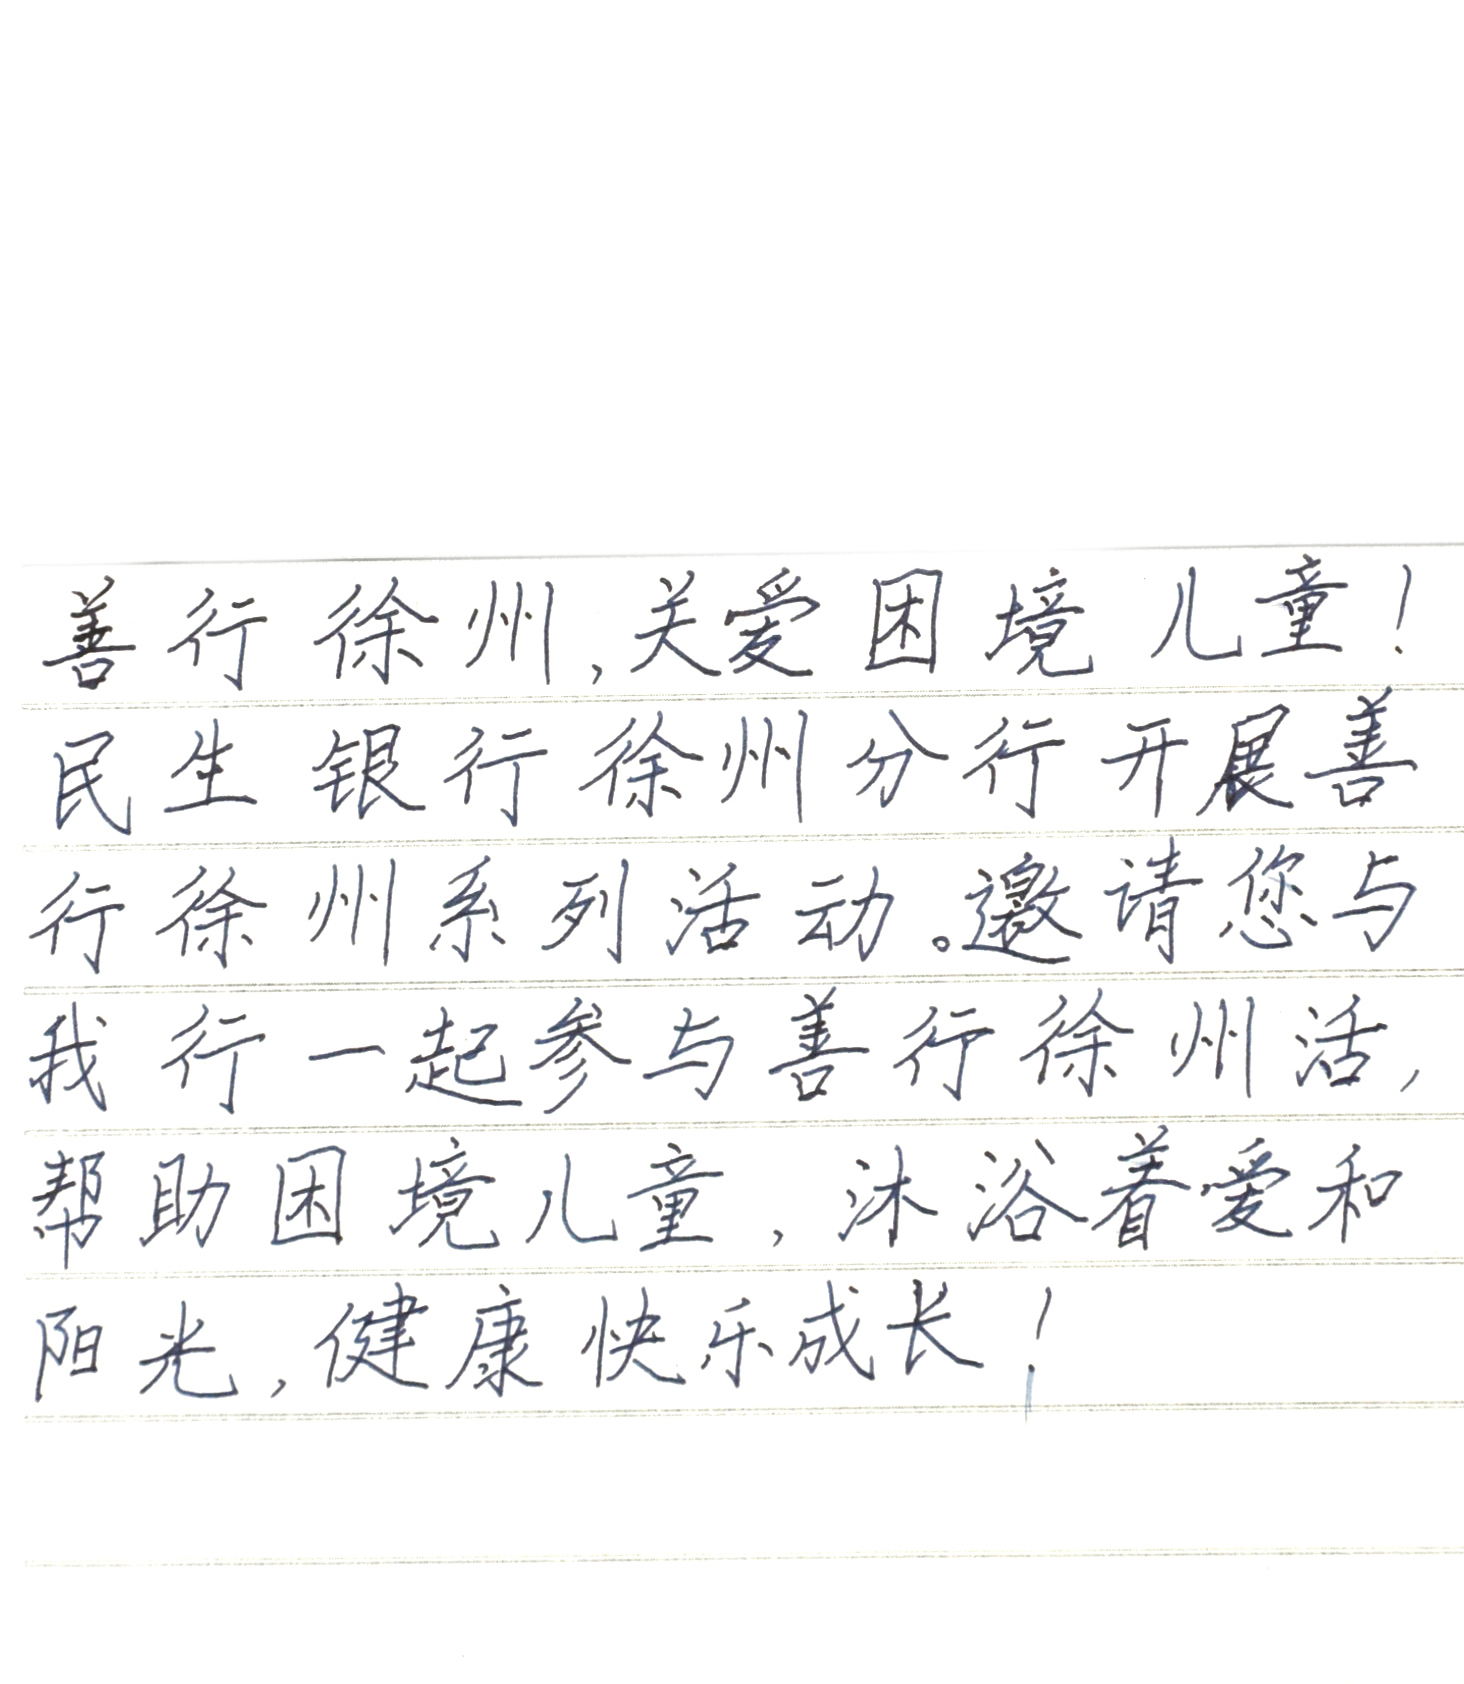 善行徐州,关爱困境儿童!
民生银行徐州分行开展善
行徐州系列活动。邀请您与
我行一起参与善行徐州活,
帮助困境儿童,沐浴着爱和
阳光,健康快乐成长!